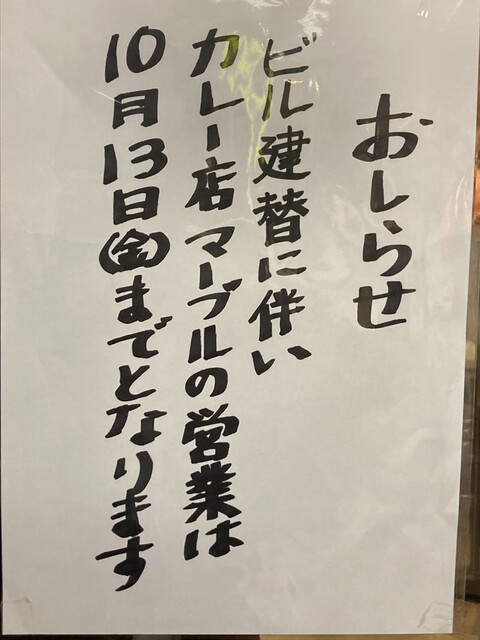 おしらせ
ビル建替に伴い
カレー店マーブルの営業は
10月13日(金)までとなります